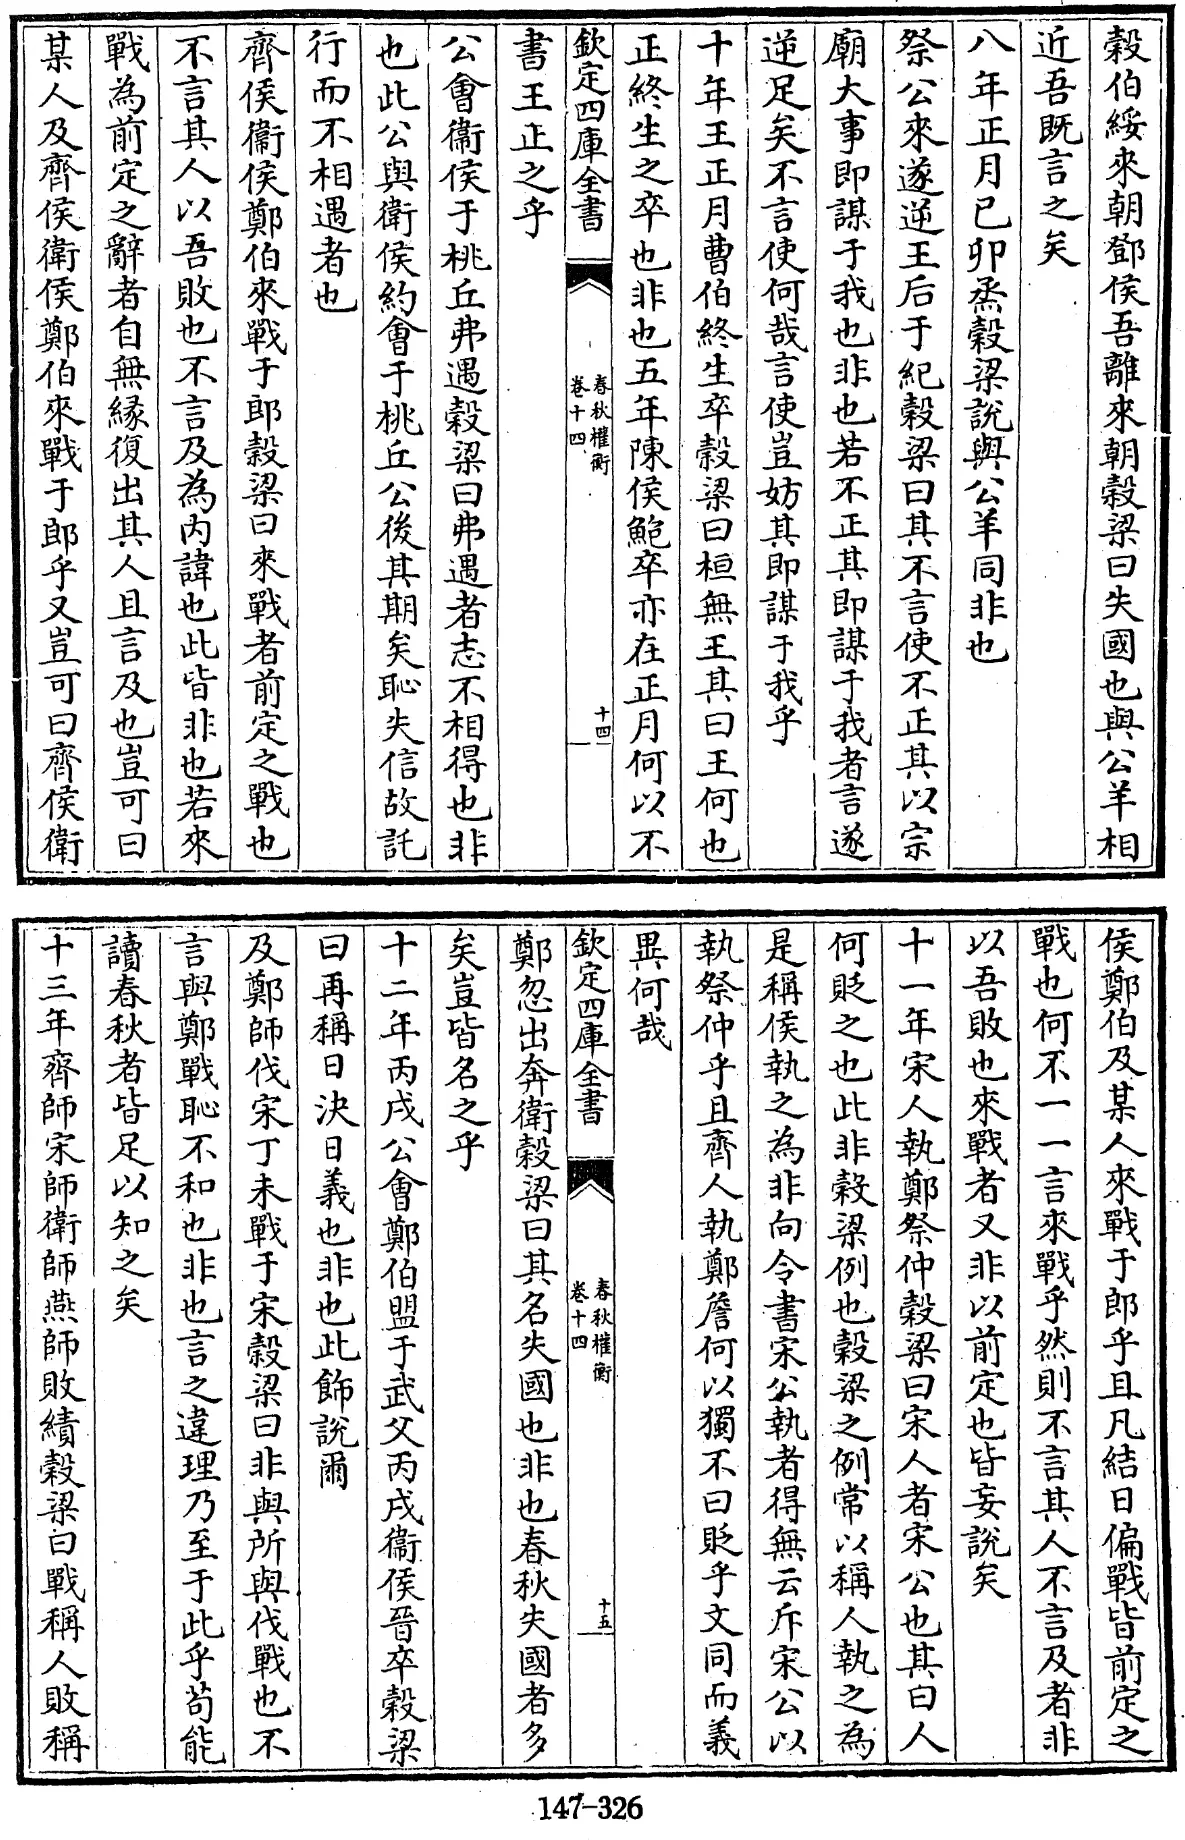 穀伯綏來朝鄧侯吾離來朝穀梁曰失國也與公羊相
近吾既言之矣
八年正月己卯烝穀梁說與公羊同非也
祭公來遂逆王后于紀穀梁曰其不言使不正其以宗
廟大事即謀于我也非也若不正其即謀于我者言遂
逆足矣不言使何哉言使豈妨其即謀于我乎
十年王正月曹伯終生卒穀梁曰桓無王其曰王何也
正終生之卒也非也五年陳侯鮑卒亦在正月何以不
欽定四庫全書
春秋權衡
卷十四
十四
書王正之乎
公會衞侯于桃丘弗遇穀梁曰弗遇者志不相得也非
也此公與衞侯約會于桃丘公後其期矣恥失信故託
行而不相遇者也
齊侯衞侯鄭伯來戰于郎穀梁曰來戰者前定之戰也
不言其人以吾敗也不言及為內諱也此皆非也若來
戰為前定之辭者自無緣復出其人且言及也豈可曰
某人及齊侯衞侯鄭伯來戰于郎乎又豈可曰齊侯衞
侯鄭伯及某人來戰于郎乎且凡結日偏戰皆前定之
戰也何不一一言來戰乎然則不言其人不言及者非
以吾敗也來戰者又非以前定也皆妄說矣
十一年宋人執鄭祭仲穀梁曰宋人者宋公也其曰人
何貶之也此非穀梁例也穀梁之例常以稱人執之為
是稱侯執之為非向令書宋公執者得無云斥宋公以
執祭仲乎且齊人執鄭詹何以獨不曰貶乎文同而義
異何哉
欽定四庫全書
春秋權衡
卷十四
十五
鄭忽出奔衞穀梁曰其名失國也非也春秋失國者多
矣豈皆名之乎
十二年丙戌公會鄭伯盟于武父丙戌衞侯晉卒穀梁
曰再稱日決日義也非也此飾說爾
及鄭師伐宋丁未戰于宋穀梁曰非與所與伐戰也不
言與鄭戰恥不和也非也言之違理乃至于此乎苟能
讀春秋者皆足以知之矣
十三年齊師宋師衞師燕師敗績穀梁曰戰稱人敗稱
147-326